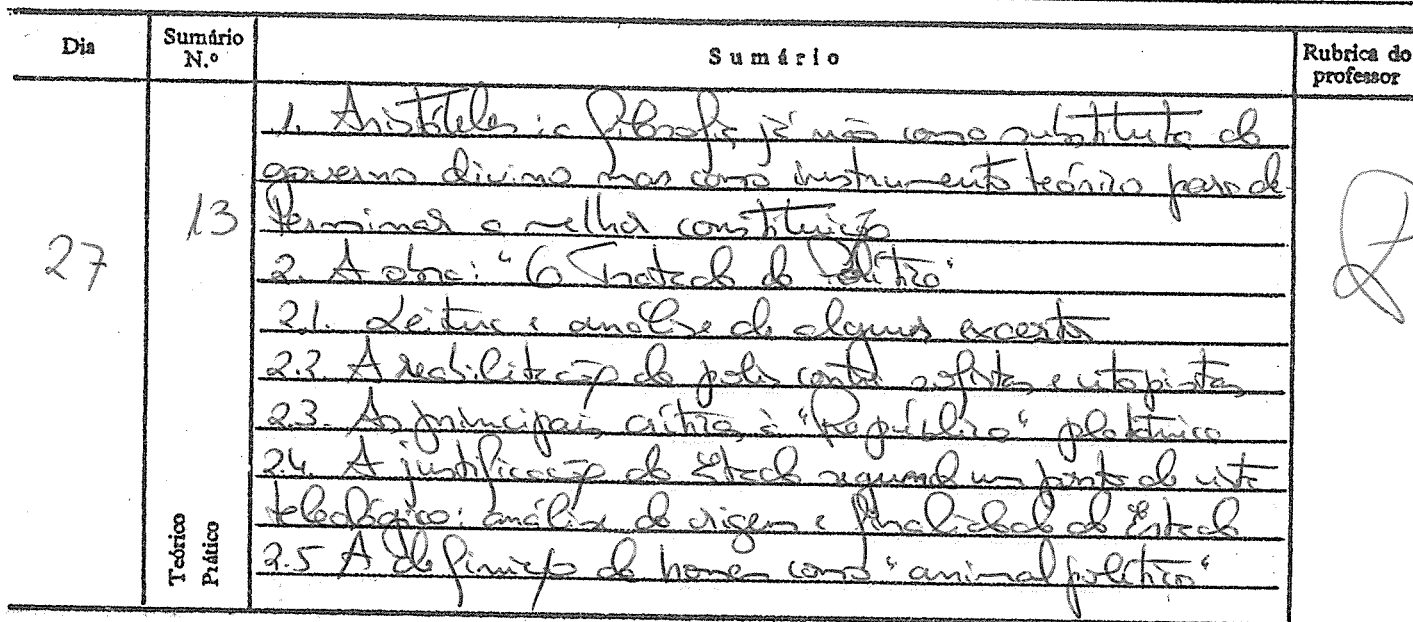 Dia
Sumário N.º
Sumário
Rubrica do professor
27
13
Teórico
Prático
1. Aristóteles: a filosofia já não como substituta do
governo divino mas como instrumento teórico para de-
terminar a melhor constituição
2. A obra: "O Tratado da Política"
2.1. Leitura e análise de alguns excertos
2.2. A reabilitação da polis contra sofistas e utopistas
2.3. As principais críticas à "República" platónica
2.4. A justificação do Estado segundo um ponto de vista
teleológico: análise da origem e finalidade do Estado
2.5 A definição do homem como "animal político"